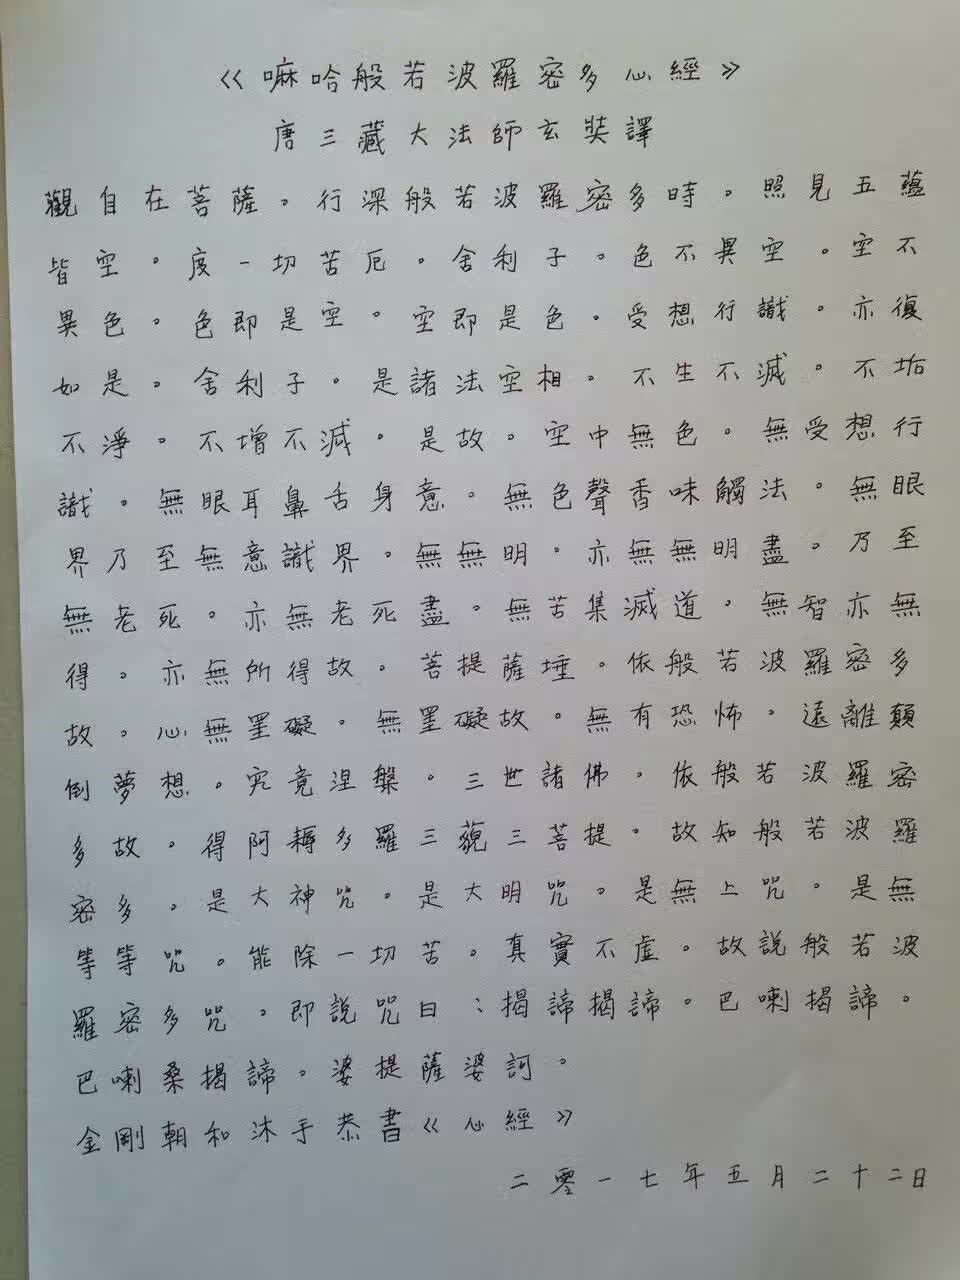 《嘛哈般若波羅密多心經》
唐三藏大法師玄奘譯
觀自在菩薩。行深般若波羅密多時。照見五蘊
皆空。度一切苦厄。舍利子。色不異空。空不
異色。色即是空。空即是色。受想行識。亦復
如是。舍利子。是諸法空相。不生不滅。不垢
不淨。不增不減。是故。空中無色。無受想行
識。無眼耳鼻舌身意。無色聲香味觸法。無眼
界乃至無意識界。無無明。亦無無明盡。乃至
無老死。亦無老死盡。無苦集滅道。無智亦無
得。亦無所得故。菩提薩埵。依般若波羅密多
故。心無罣礙。無罣礙故。無有恐怖。遠離顛
倒夢想。究竟涅槃。三世諸佛。依般若波羅密
多故。得阿耨多羅三藐三菩提。故知般若波羅
密多。是大神咒。是大明咒。是無上咒。是無
等等咒。能除一切苦。真實不虛。故說般若波
羅密多咒。即說咒曰：揭諦揭諦。巴喇揭諦。
巴喇桑揭諦。婆提薩婆訶。
金剛朝和沐手恭書《心經》
二零一七年五月二十二日